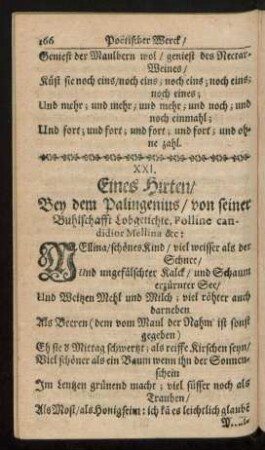 166 Poëtischer Werck/
Geniest der Maulbern wol / geniest des Nectar-
Weines/
Küst sie noch eins/noch eins; noch eins; noch eins;
noch eines;
Und mehr; und mehr; und mehr; und noch; und
noch einmahl;
Und fort; und fort; und fort; und fort; und oh-
ne zahl.
XXI.
Eines Hirten/
Bey dem Palingenius/ von seiner
Buhlschafft Lobgetichte. Polline can-
didior Mellina &c:
MEllina/schönes Kind / viel weisser als der
Schnee/
Und ungefälschter Kalck / und Schaum
erzürnter See/
Und Weitzen Mehl und Milch; viel röhter auch
darneben
Als Beeren (dem vom Maul der Nahm ist sonst
gegeben)
Eh sie d Mittag schwertzt; als reiffe Kirschen seyn/
Viel schöner als ein Baum wenn ihn der Sonnen-
schein
Im Lentzen grünend macht; viel süsser noch als
Trauben/
Als Most/als Honigseim: ich kā es leichtlich glaubē